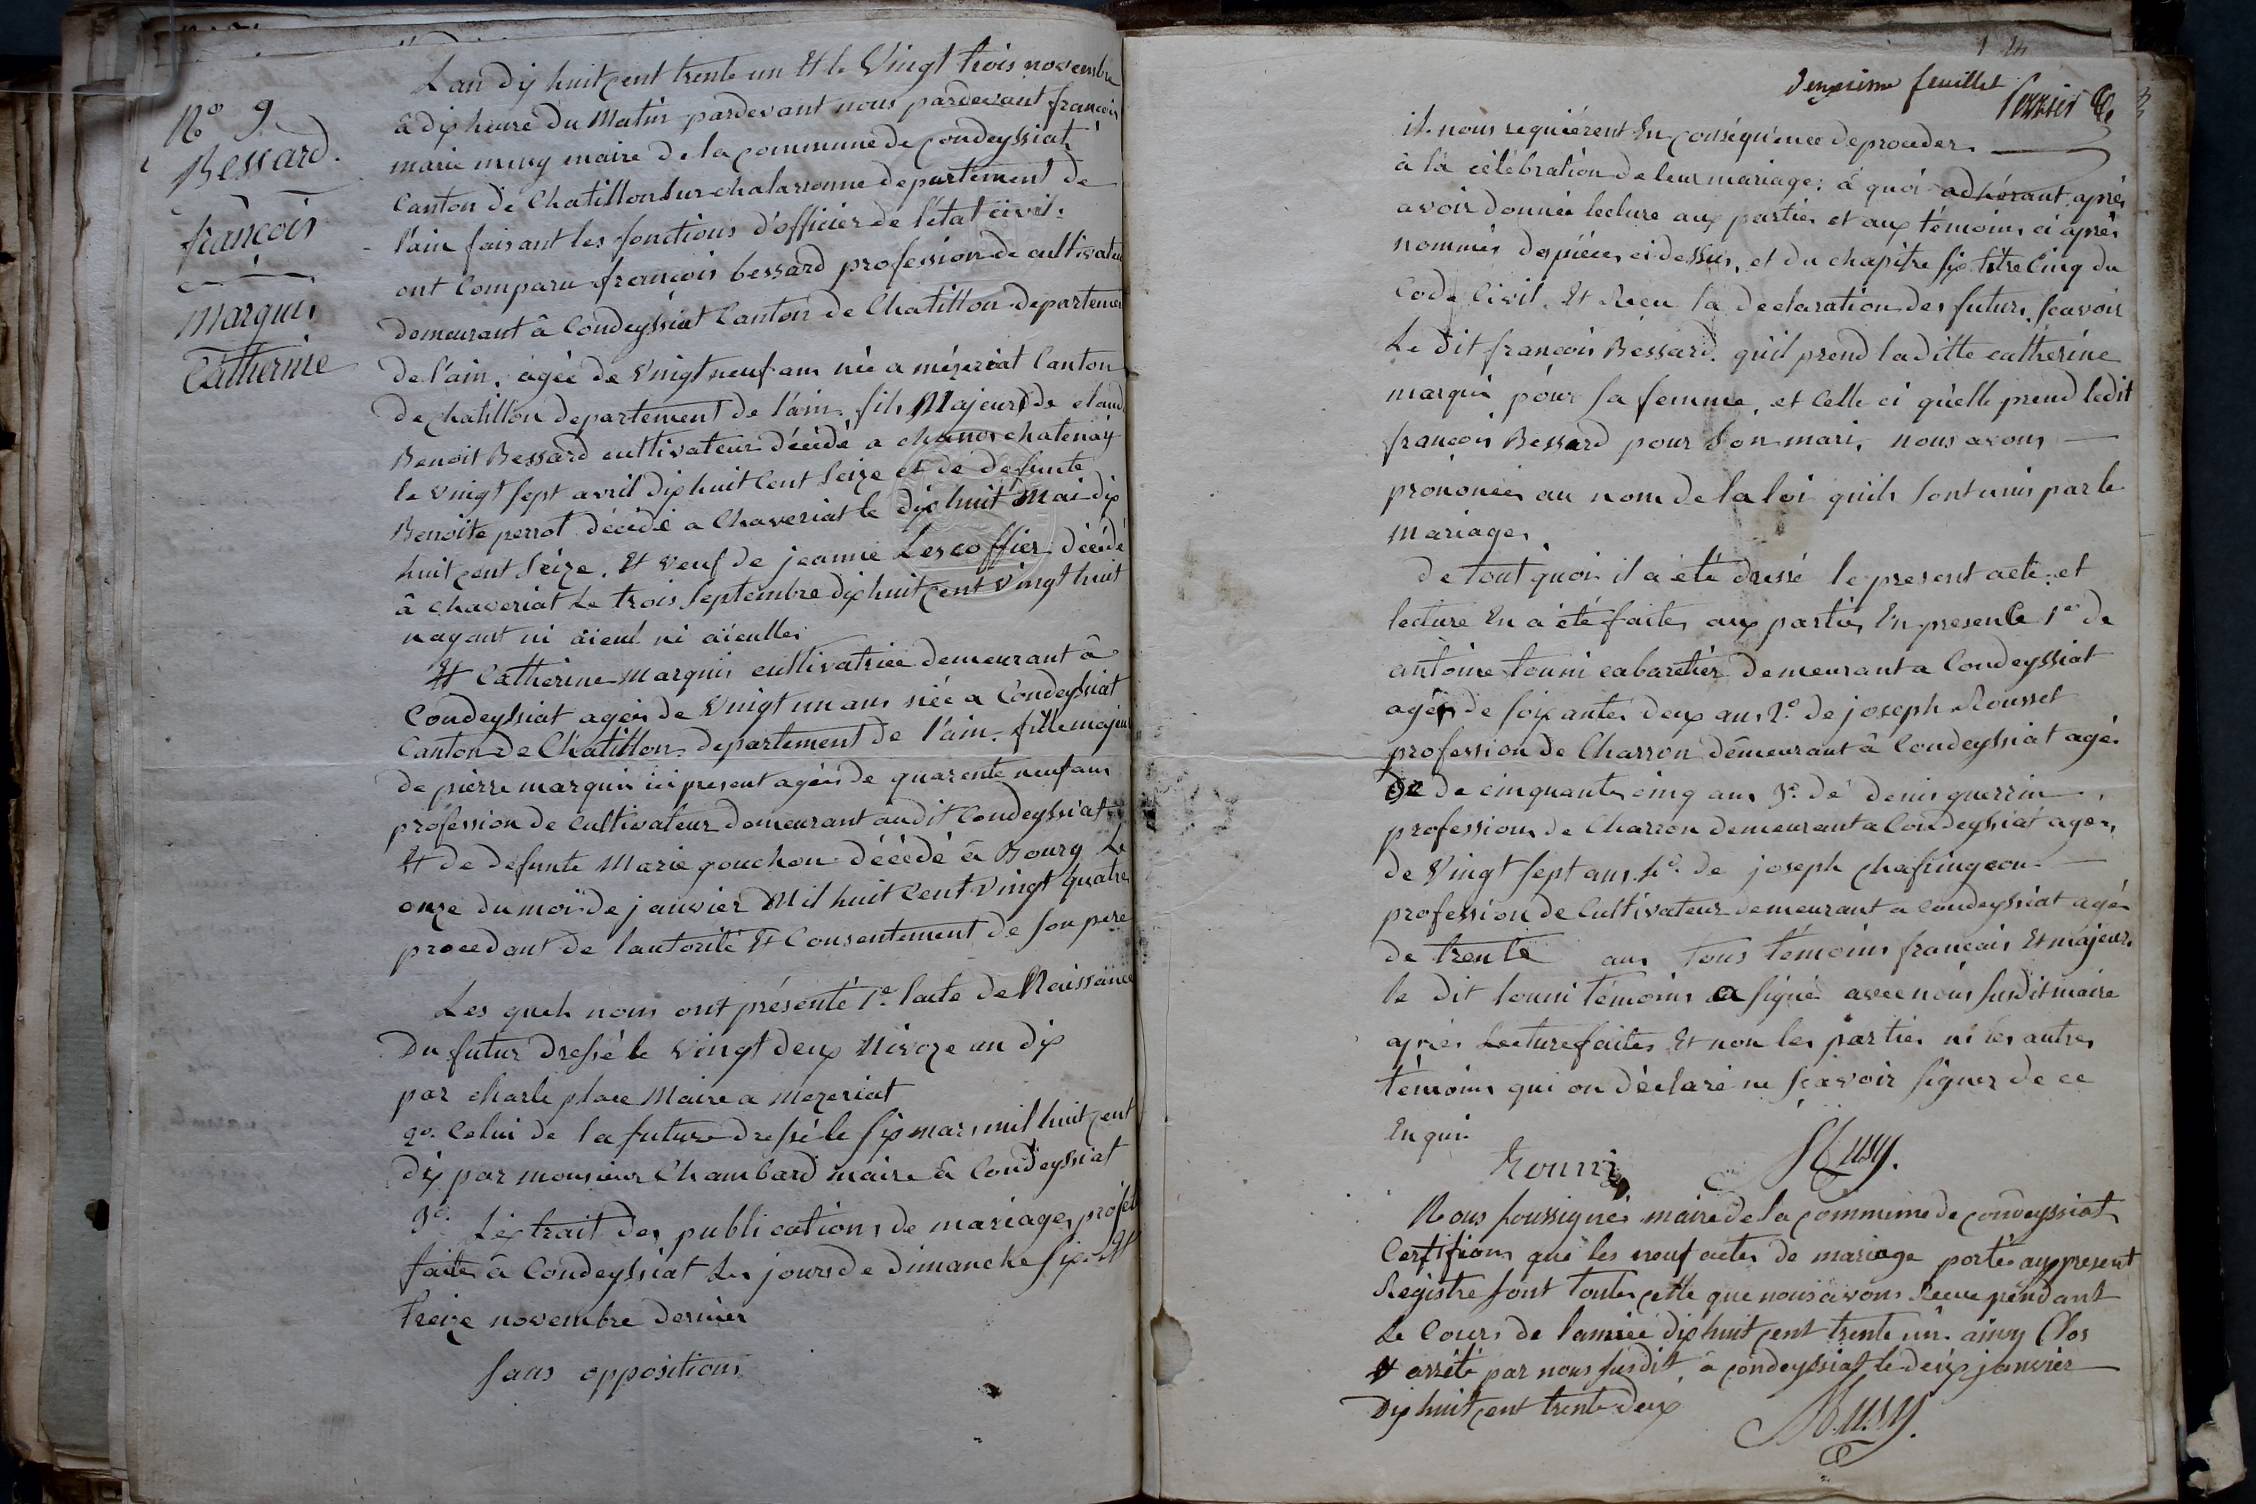 No 9
Bessard
françois
marquis
Catherine
Lan dix huit cent trente un Et le Vingt trois novembre
à dix heure du Matin pardevant nous pardevant françois
marie maire de la commune de Condeyssiat
Canton de Chatillon sur chalaronne departement de
l'ain faisant les fonctions d'officier de l'état civil.
ont Comparu françois bessard profession de cultivateur
demeurant â Condeyssiat Canton de Chatillon departemen
de l'ain, agée de Vingt neuf ans née a mézeriat Canton
de chatillon departement de l'ain. fils Majeur de claud
Benoit Bessard cultivateur décédé a chanos chatenay
le vingt sept avril dix huit Cent Seize et de defunte
Benoite perrot décédé a Chaveriat le dix huit Mai dix
huit cent Seize. Et veuf de jeanne Lescoffier décédé
â chaveriat Le trois Septembre dix huit cent Vingt huit
nayant ni aïeul ni aïeulles
Et Catherine marquis cultivatrice demeurant â
Condeyssiat agée de Vingt un ans née a Condeyssiat
Canton de Chatillon departement de l'ain. fille majeur
de pierre marquis ici present agée de quarente neuf ans
profession de Cultivateur demeurant audit Condeyssiat
Et de defunte Marie gouchon décédé â Bourg Le
onze du moi de janvier Mil huit Cent Vingt quatre
procedant de lautorité Et Consentement de son pere
Les quels nous ont présenté 1o lacte de Naissance
Du futur dressé le Vingt deux Nivoze an dix
par charle place Maire a mezeriat
2o Celui de la future dressé le six mars mil huit cent
dix par monsieur Chambard maire â Condeyssiat
3o Lextrait des publications de mariages projet
faites â Condeyssiat Les jours de Dimanche six Et
treize novembre dernier
sans oppositions
Deuxieme feuillet
il nous requiérent En conséquence de proceder
à la célébration de leur mariage; â quoi adhérant, après
avoir donnée lecture aux parties et aux témoins ci après
nommés des piéces ci dessus, et du chapitre six titre Cinq du
Code Civil. Et Recu la declaration des futurs, scavoir
Le dit françois Bessard. quil prend la ditte catherine
marquis pour sa femme, et Celle ci qu'elle prend ledit
françois Bessard pour son mari, nous avons
prononcée au nom de la loi quils sont unis par le
mariage,
de tout quoi il a été dressé le present acte, et
lecture En a été faites aux parties En presence 1o de
antoine touni cabaretier demeurant a Condeyssiat
agée de soixantes deux ans 2o de joseph Rousset
profession de Charron demeurant â Condeyssiat agée
de de cinquantes cinq ans 3o de denis guerrin
profession de Charron demeurant a Condeyssiat agée
de Vingt sept ans. 4o de joseph chafringeon
profession de Cultivateur demeurant a Condeyssiat agée
de trente ans tous témoins français Et majeurs
le dit touni témoins a signé avec nous susdit maire
après Lecture faites Et non les parties ni les autres
témoins qui on déclaré ne scavoir signer de ce
Enquis
touni
Nous soussignés maire de la commune de condeyssiat
Certifions que les neuf actes de mariage portés au present
Registre sont toutes celle que nous avons Recu pendant
Le Cours de lannée dix huit cent trente un. ainsy Clos
et arrêté par nous susdit, â condeyssiat le deux janvier
Dix huit cent trente deux